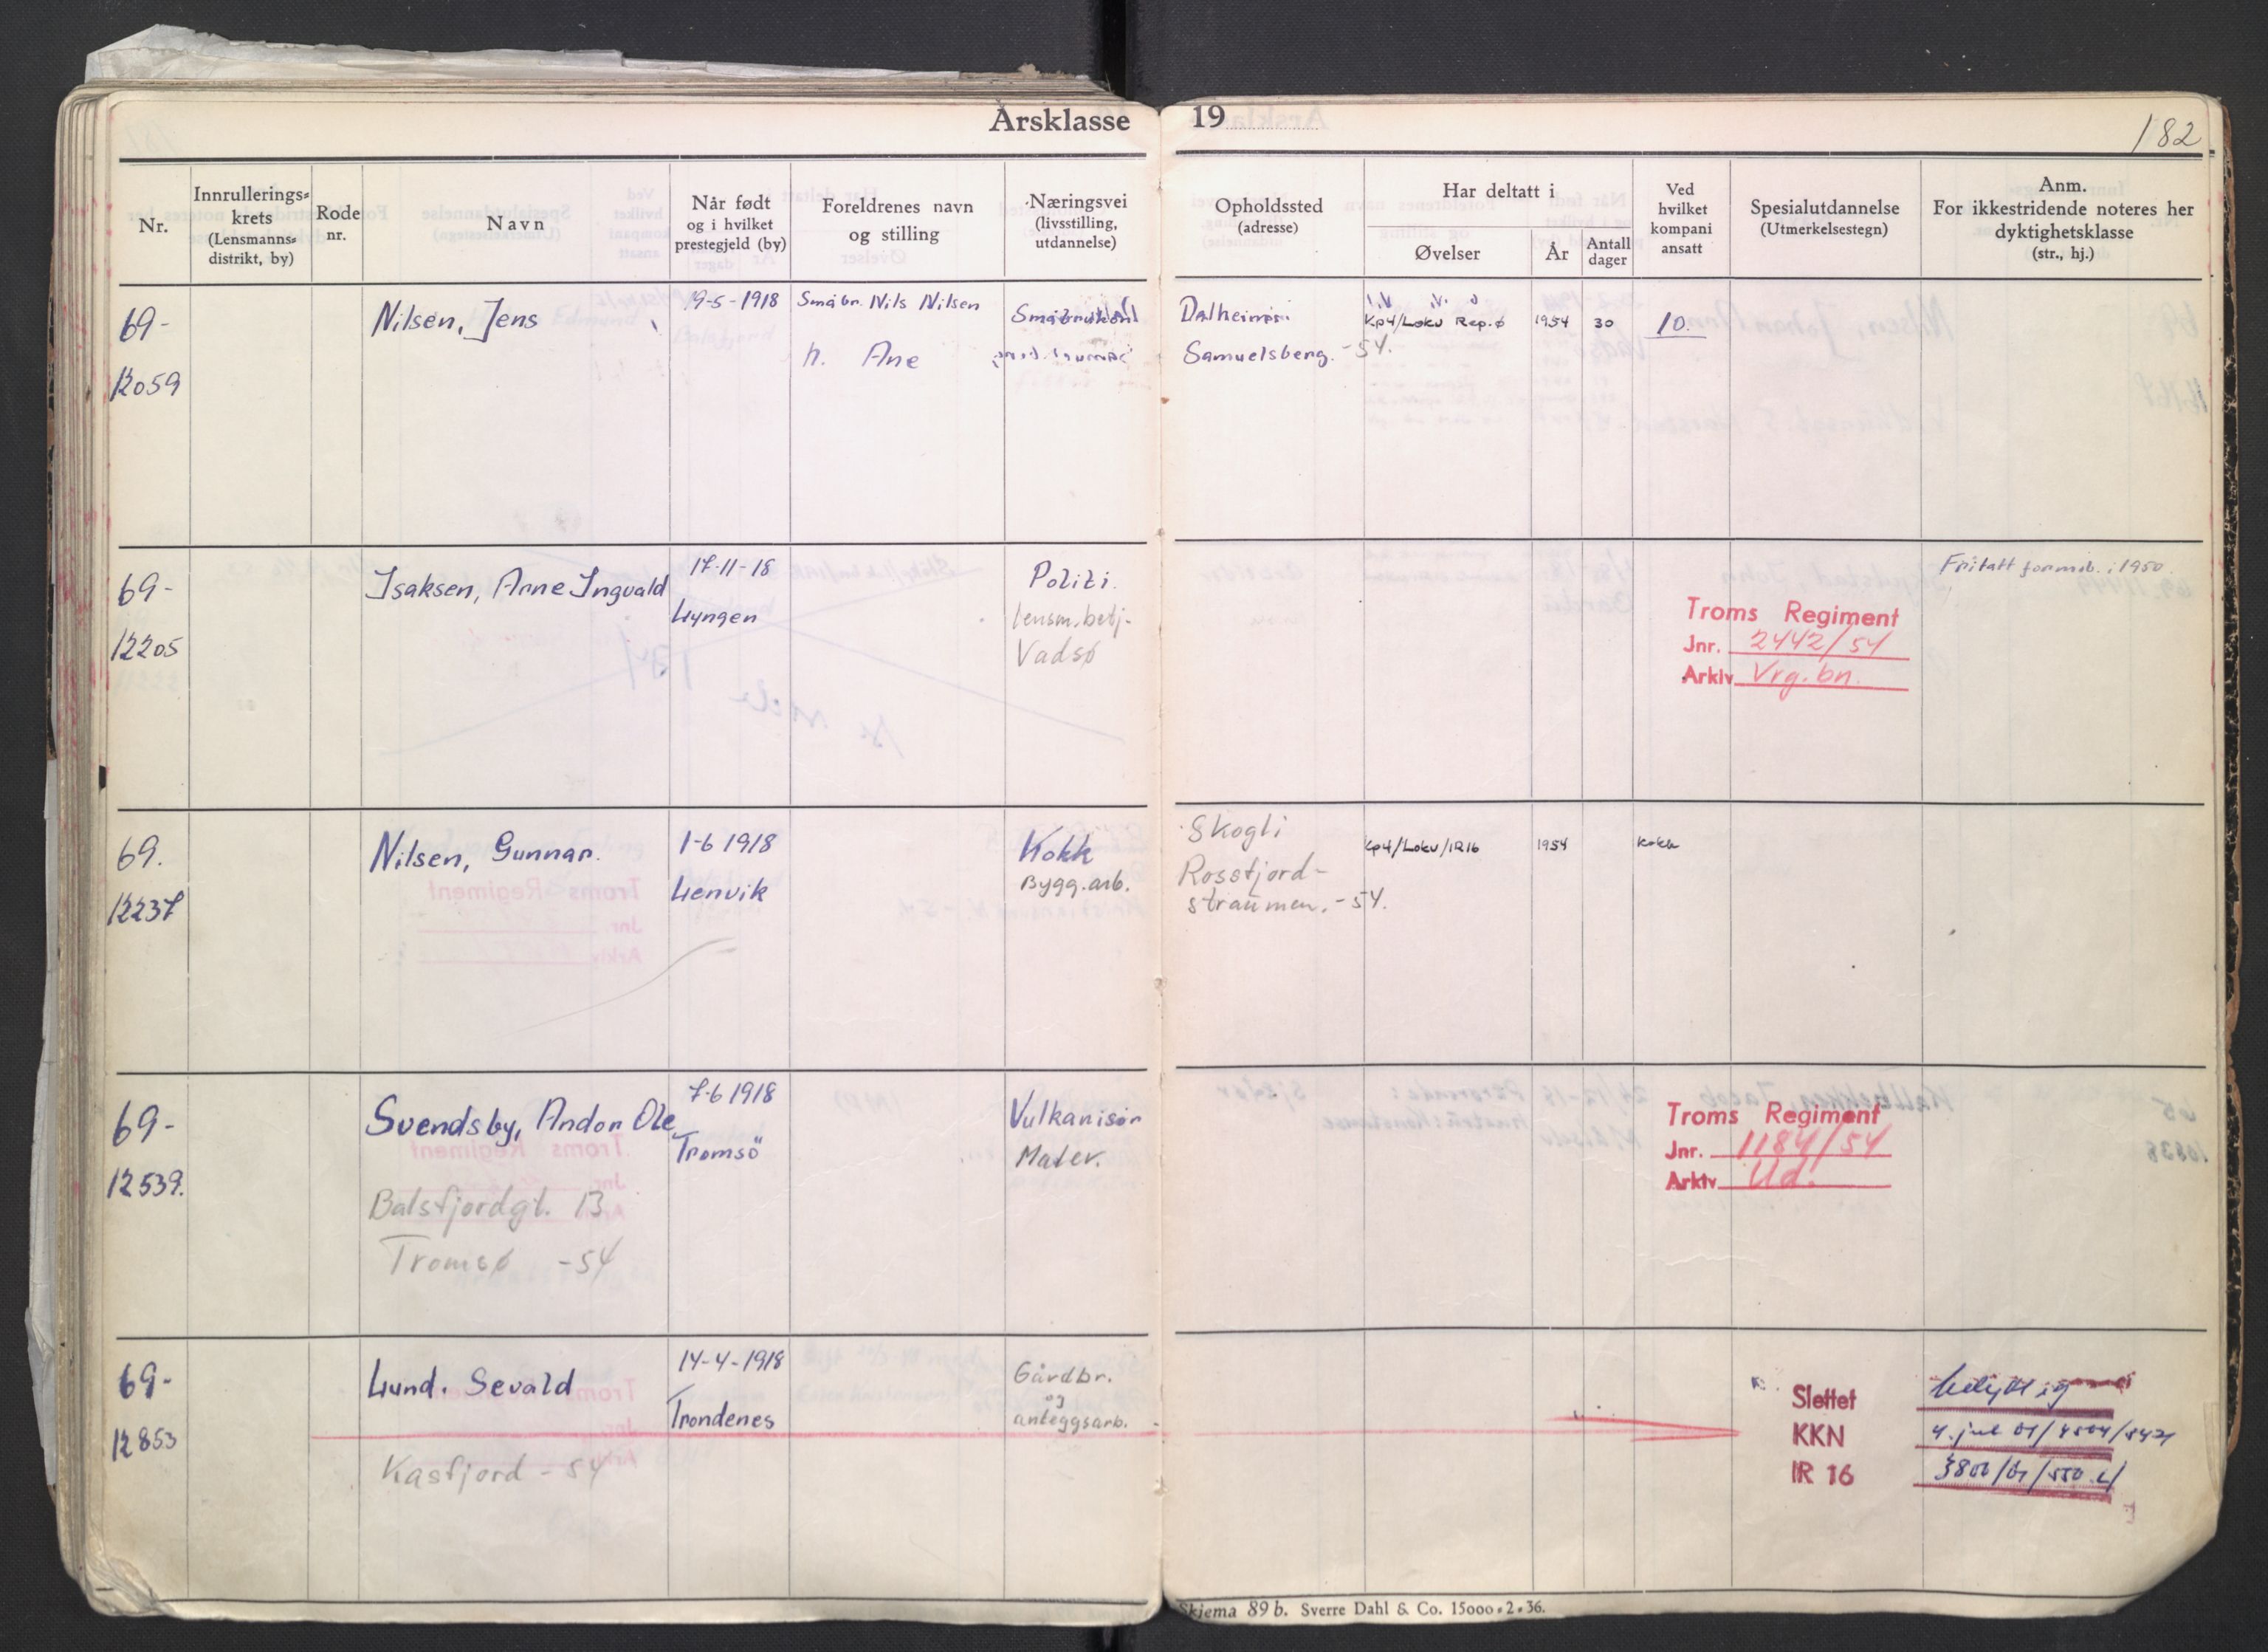 Årsklasse 19
182
Nr.
Innrullerings-
krets
(Lensmanns-
distrikt, by)
Rode
nr.
Navn
Når født
og i hvilket
prestegjeld (by)
Foreldrenes navn
og stilling
Næringsvei
(livsstilling,
utdannelse)
Opholdssted
(adresse)
Har deltatt i
Øvelser
År
Antall
dager
Ved
hvilket
kompani
ansatt
Spesialutdannelse
(Utmerkelsestegn)
Anm.
For ikkestridende noteres her
dyktighetsklasse
(str., hj.)
69-
12059
Nilsen, Jens
9-5-1918
Småbr. Nils Nilsen
h. Ane
Dalheim
Samuelsberg. -54.
Kp4/Lokv Rep.ø
1954
30
10.
69-
12205
Isaksen, Arne Ingvald
17-11-18
Lyngen
Politi.
lensm.betj.
Vadsø
Troms Regiment
Jnr. 2442/54
Arkiv Vrg. bn.
Fritatt for mob. i 1950.
69.
12237
Nilsen, Gunnar.
1-6 1918
Lenvik
Kokk
Bygg.arb.
Skogli
Rossfjord-
straumen. -54.
Kp4/Lokv/IR16
1954
Kokk
69-
12539.
Svendsby, Andor Ole
7-6 1918
Tromsö
Balsfjordgt. 13
Tromsø -54
Vulkanisør
Maler.
Troms Regiment
Jnr. 1184/54
Arkiv Ud.
69-
12853
Lund. Sevald
14-4-1918
Trondenes
Kasfjord - 54
Gårdbr.
og
anleggsarb.
Slettet
KKN
IR 16
Skjema 89 b. Sverre Dahl & Co. 15000-2-36.